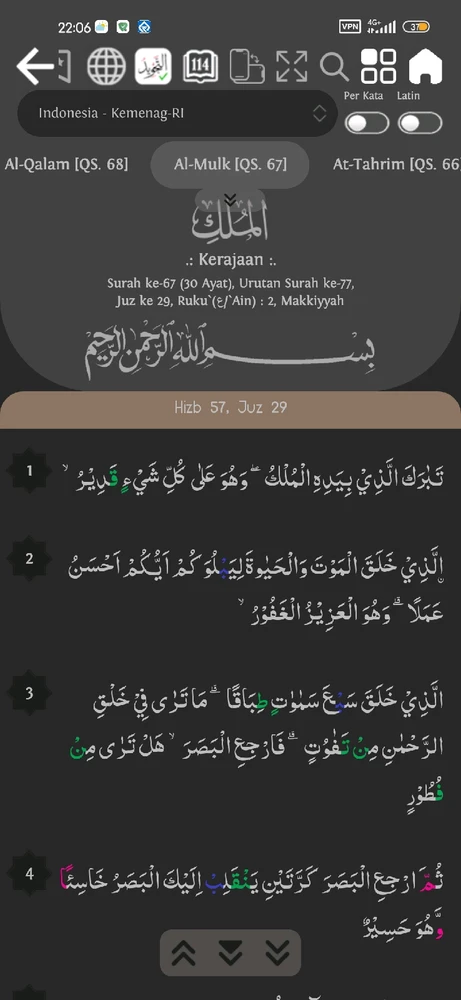 22:06 VPN 4G+ 37
114
Per Kata Latin
Indonesia - Kemenag-RI
Al-Qalam [QS. 68] Al-Mulk [QS. 67] At-Tahrim [QS. 66
الملك
.: Kerajaan :.
Surah ke-67 (30 Ayat), Urutan Surah ke-77,
Juz ke 29, Ruku`(ع/`Ain) : 2, Makkiyyah
بسم الله الرحمن الرحيم
Hizb 57, Juz 29
1
تَبٰرَكَ الَّذِيْ بِيَدِهِ الْمُلْكُۖ وَهُوَ عَلٰى كُلِّ شَيْءٍ قَدِيْرٌۙ
2
الَّذِيْ خَلَقَ الْمَوْتَ وَالْحَيٰوةَ لِيَبْلُوَكُمْ اَيُّكُمْ اَحْسَنُ
عَمَلًاۗ وَهُوَ الْعَزِيْزُ الْغَفُوْرُۙ
3
الَّذِيْ خَلَقَ سَبْعَ سَمٰوٰتٍ طِبَاقًاۗ مَا تَرٰى فِيْ خَلْقِ
الرَّحْمٰنِ مِنْ تَفٰوُتٍۗ فَارْجِعِ الْبَصَرَۙ هَلْ تَرٰى مِنْ
فُطُوْرٍ
4
ثُمَّ ارْجِعِ الْبَصَرَ كَرَّتَيْنِ يَنْقَلِبْ اِلَيْكَ الْبَصَرُ خَاسِئًا
وَّهُوَ حَسِيْرٌ